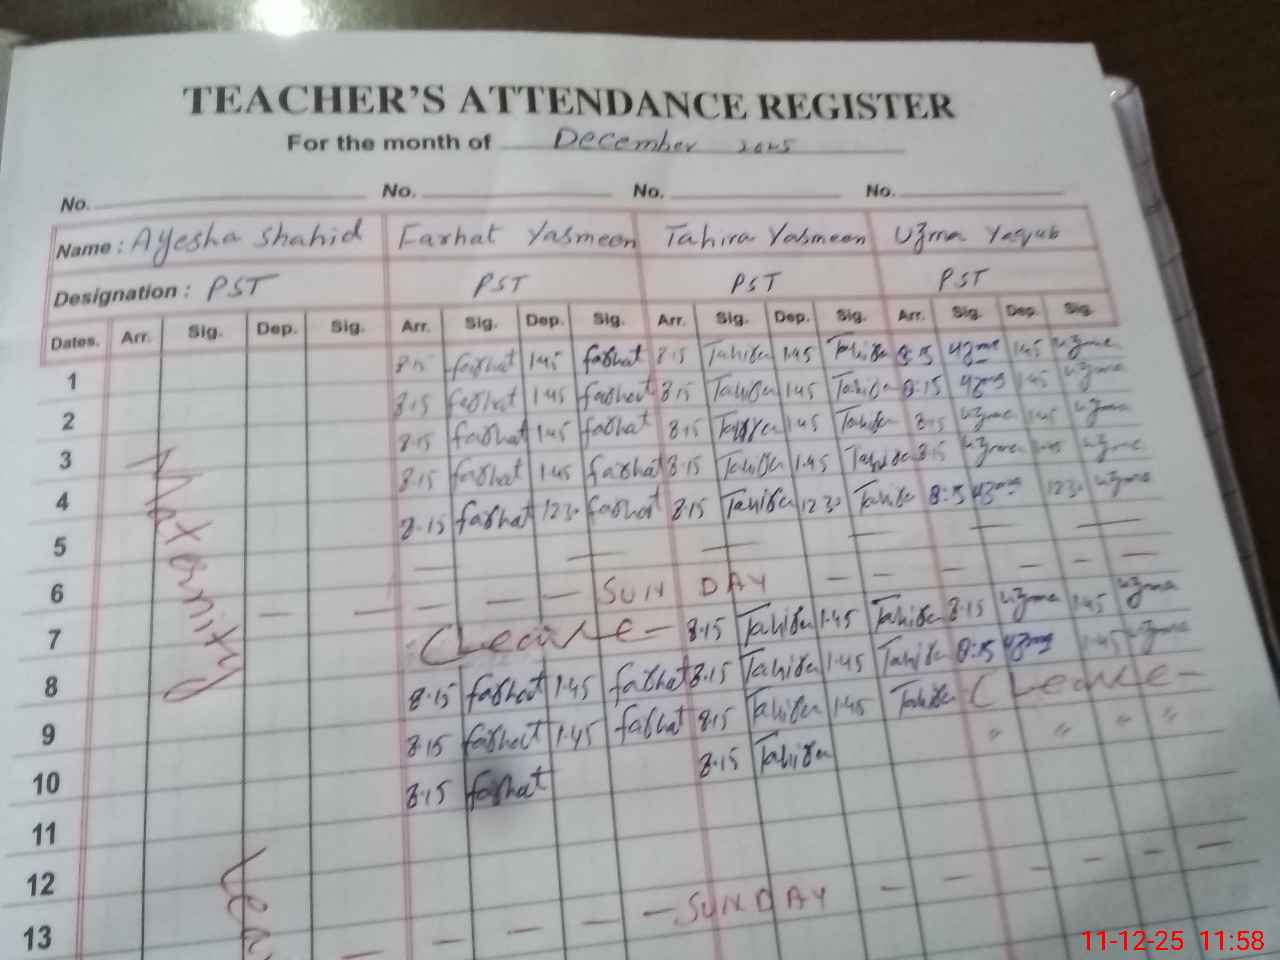 TEACHER'S ATTENDANCE REGISTER
For the month of December 2025
No. No. No. No.
Name : Ayesha Shahid Farhat Yasmeen Tahira Yasmeen Uzma Yaqub
Designation : PST PST PST PST
Dates. Arr. Sig. Dep. Sig. Arr. Sig. Dep. Sig. Arr. Sig. Dep. Sig. Arr. Sig. Dep. Sig.
1 8:15 farhat 1:45 farhat 8:15 Tahira 1:45 Tahira 8:15 uzma 1:45 uzma
2 8:15 farhat 1:45 farhat 8:15 Tahira 1:45 Tahira 8:15 uzma 1:45 uzma
3 8:15 farhat 1:45 farhat 8:15 Tahira 1:45 Tahira 8:15 uzma 1:45 uzma
4 8:15 farhat 1:45 farhat 8:15 Tahira 1:45 Tahira 8:15 uzma 1:45 uzma
5 8:15 farhat 12:30 farhat 8:15 Tahira 12:30 Tahira 8:15 uzma 12:30 uzma
6
7 — — — — — SUNDAY — — — — — —
8 8:15 Tahira 1:45 Tahira 8:15 uzma 1:45 uzma
9 8:15 farhat 1:45 farhat 8:15 Tahira 1:45 Tahira 8:15 uzma 1:45 uzma
10 8:15 farhat 1:45 farhat 8:15 Tahira 1:45 Tahira
11 8:15 farhat 8:15 Tahira " " " "
12
13
— — — — — SUNDAY — — — — — —
11-12-25 11:58